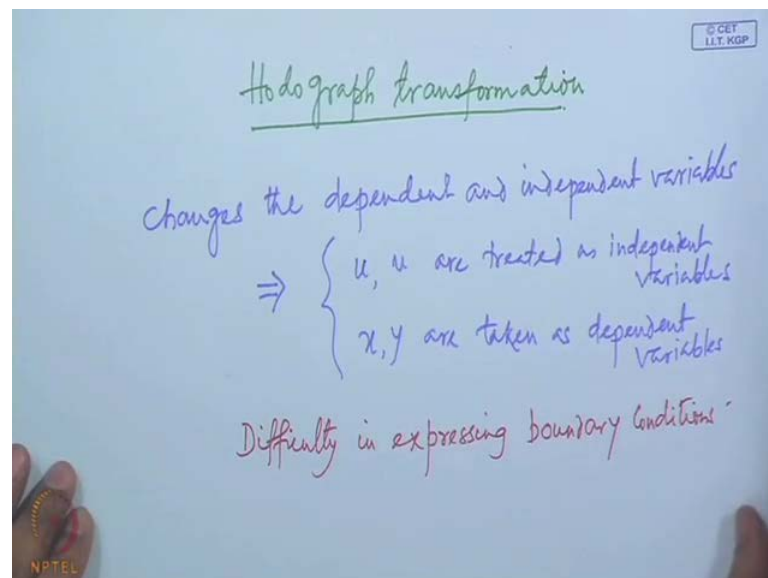 © CET
I.I.T. KGP
Hodograph transformation
Changes the dependent and independent variables
⇒ { u, u are treated as independent
variables
x, y are taken as dependent
variables
Difficulty in expressing boundary Conditions.
NPTEL